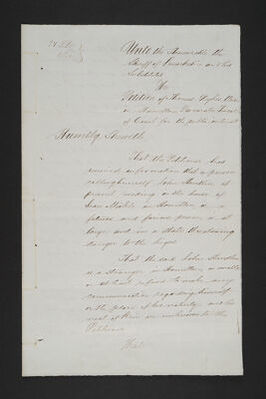 Unto the Honourable the
Sheriff of Lanarkshire or his
Substitute
The
Petition of Thomas
in Hamilton Procurator Fiscal
of Court for the public interest
Humbly Sheweth
That the Petitioner has
received information that a person
calling himself John
at present residing in the house of
in Hamilton is a
furious and person is at
large and in a state threatening
danger to the lieges
That the said John
is a Stranger in Hamilton, is unable
or at least refuses to make any
communication regarding himself
or the place of his nativity and his
next of Kin are unknown to the
Petitioner
That